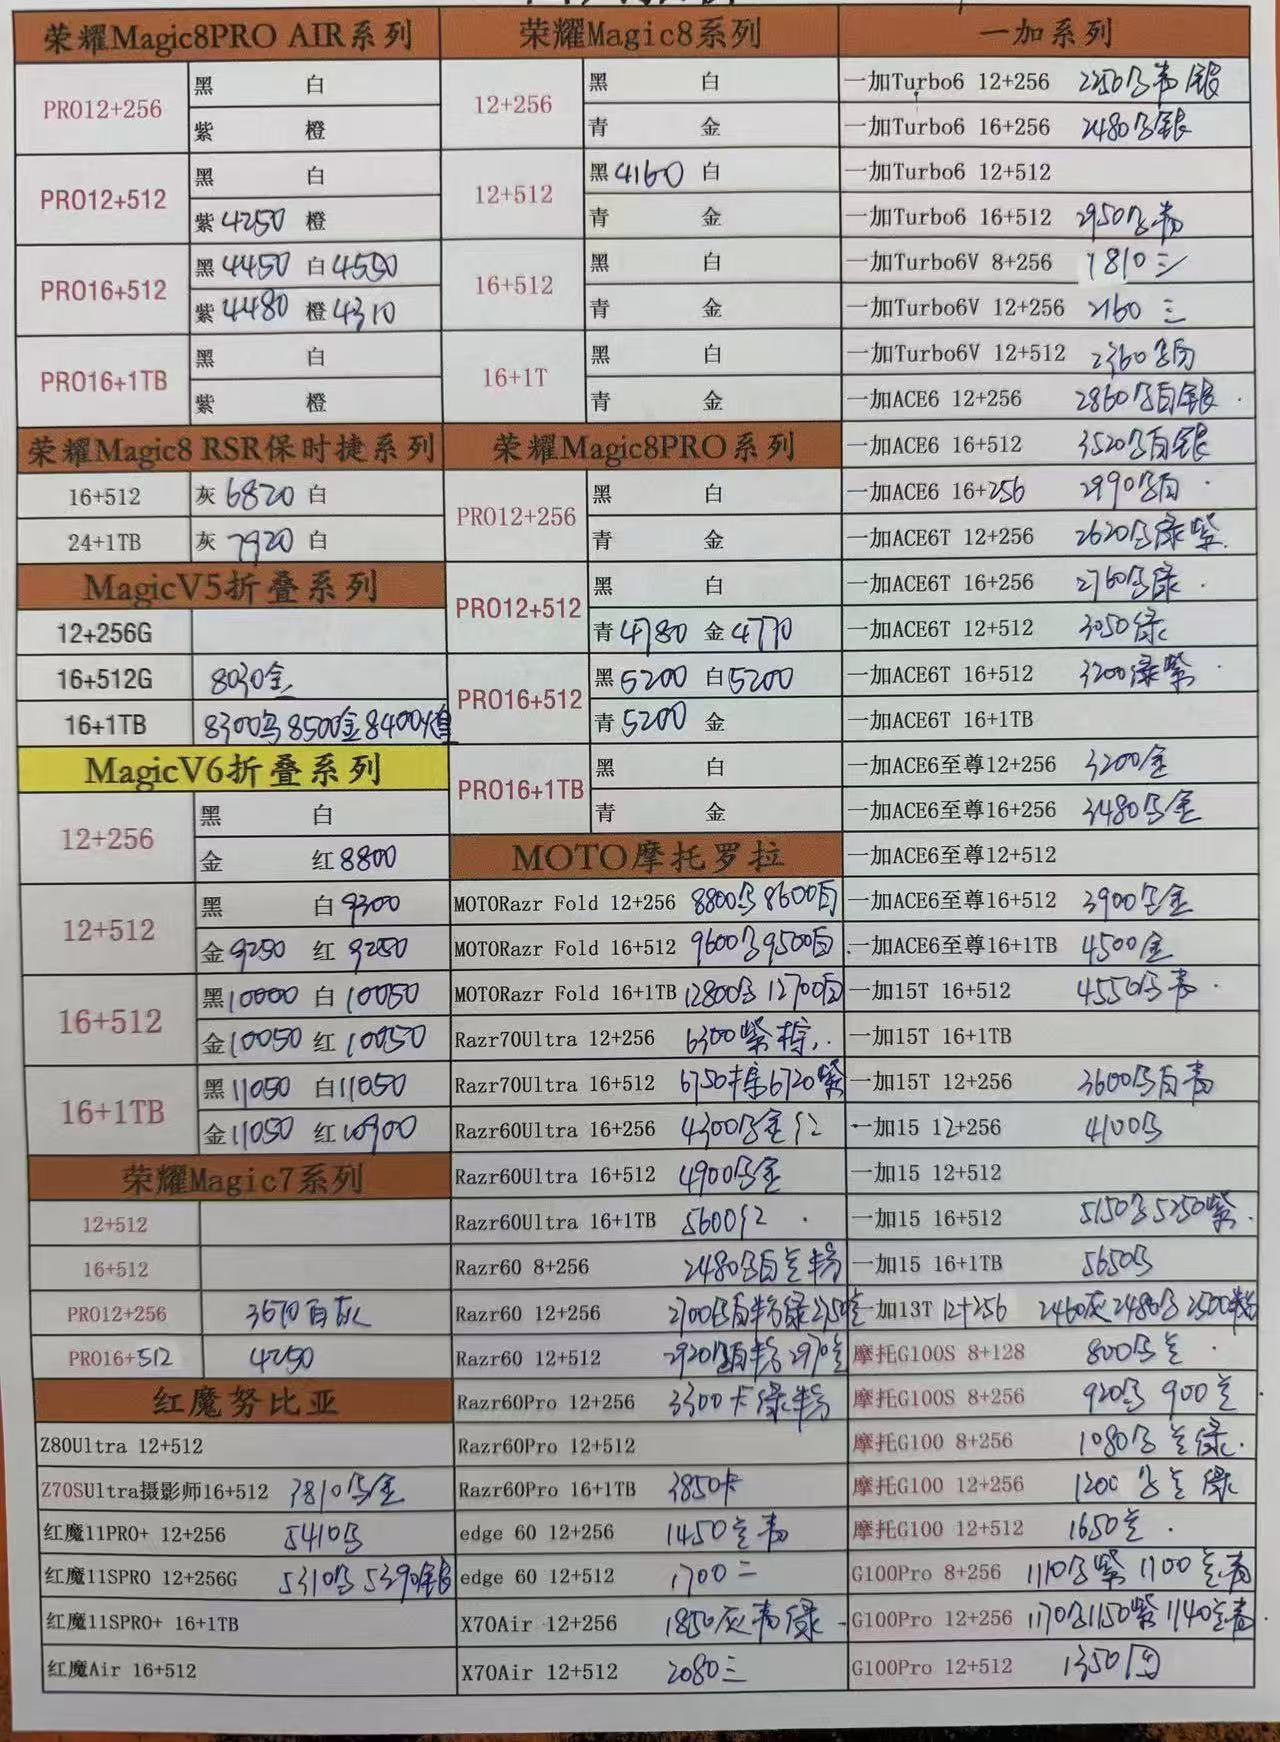 荣耀Magic8PRO AIR系列
PRO12+256 黑 白
紫 橙
PRO12+512 黑 白
紫4250 橙
PRO16+512 黑4450 白4550
紫4480 橙4310
PRO16+1TB 黑 白
紫 橙
荣耀Magic8 RSR保时捷系列
16+512 灰6820 白
24+1TB 灰7920 白
MagicV5折叠系列
12+256G
16+512G 8030金
16+1TB 8300乌8500金8400
MagicV6折叠系列
12+256 黑 白
金 红8800
12+512 黑 白9300
金9250 红9250
16+512 黑10000 白10050
金10050 红10050
16+1TB 黑11050 白11050
金11050 红10900
荣耀Magic7系列
12+512
16+512
PRO12+256 3670白灰
PRO16+512 4250
红魔努比亚
Z80Ultra 12+512
Z70SUltra摄影师16+512 3810乌金
红魔11PRO+ 12+256 5410乌
红魔11SPRO 12+256G 5310乌5390银
红魔11SPRO+ 16+1TB
红魔Air 16+512
荣耀Magic8系列
12+256 黑 白
青 金
12+512 黑4160 白
青 金
16+512 黑 白
青 金
16+1T 黑 白
青 金
荣耀Magic8PRO系列
PRO12+256 黑 白
青 金
PRO12+512 黑 白
青4780 金4770
PRO16+512 黑5200 白5200
青5200 金
PRO16+1TB 黑 白
青 金
MOTO摩托罗拉
MOTORazr Fold 12+256 8800乌8600白
MOTORazr Fold 16+512 9600乌9500白
MOTORazr Fold 16+1TB 12800乌12700白
Razr70Ultra 12+256 6300紫棕
Razr70Ultra 16+512 6750棕6720紫
Razr60Ultra 16+256 4300乌金红
Razr60Ultra 16+512 4900乌金
Razr60Ultra 16+1TB 5600红
Razr60 8+256 2480乌白兰粉
Razr60 12+256 2700乌白粉绿2750兰
Razr60 12+512 2920乌白粉2970兰
Razr60Pro 12+256 3300卡绿粉
Razr60Pro 12+512
Razr60Pro 16+1TB 3850卡
edge 60 12+256 1450兰青
edge 60 12+512 1700二
X70Air 12+256 1850灰青绿
X70Air 12+512 2080三
一加系列
一加Turbo6 12+256 2250乌青银
一加Turbo6 16+256 2480乌银
一加Turbo6 12+512
一加Turbo6 16+512 2950乌青
一加Turbo6V 8+256 1810三
一加Turbo6V 12+256 2160三
一加Turbo6V 12+512 2360乌白
一加ACE6 12+256 2860乌白银
一加ACE6 16+512 3520乌白银
一加ACE6 16+256 2990乌白
一加ACE6T 12+256 2620乌绿紫
一加ACE6T 16+256 2760乌绿
一加ACE6T 12+512 3050绿
一加ACE6T 16+512 3200绿紫
一加ACE6T 16+1TB
一加ACE6至尊12+256 3200金
一加ACE6至尊16+256 3480乌金
一加ACE6至尊12+512
一加ACE6至尊16+512 3900乌金
一加ACE6至尊16+1TB 4500金
一加15T 16+512 4550乌青
一加15T 16+1TB
一加15T 12+256 3600乌白青
一加15 12+256 4100乌
一加15 12+512
一加15 16+512 5150乌5250紫
一加15 16+1TB 5650乌
一加13T 12+256 2460灰2480乌2500粉
摩托G100S 8+128 800乌兰
摩托G100S 8+256 920乌 900兰
摩托G100 8+256 1080乌兰绿
摩托G100 12+256 1200乌兰绿
摩托G100 12+512 1650兰
G100Pro 8+256 1110乌紫 1100兰青
G100Pro 12+256 1170乌1150紫1140兰青
G100Pro 12+512 1350